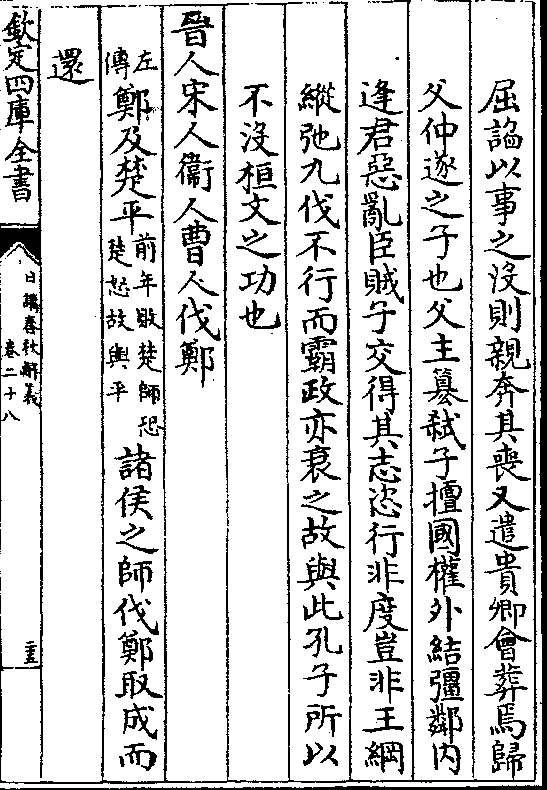 屈謟以事之沒則親奔其喪又遣貴卿會葬焉歸
父仲遂之子也父主簒弑子擅國權外結彊鄰内
逢君惡亂臣賊子交得其志恣行非度豈非王綱
縱弛九伐不行而霸政亦衰之故與此孔子所以
不沒桓文之功也
晉人宋人衞人曹人伐鄭
左傳鄭及楚平前年敗楚師恐楚怒故與平諸侯之師伐鄭取成而
還
欽定四庫全書
日講春秋解義
卷二十八